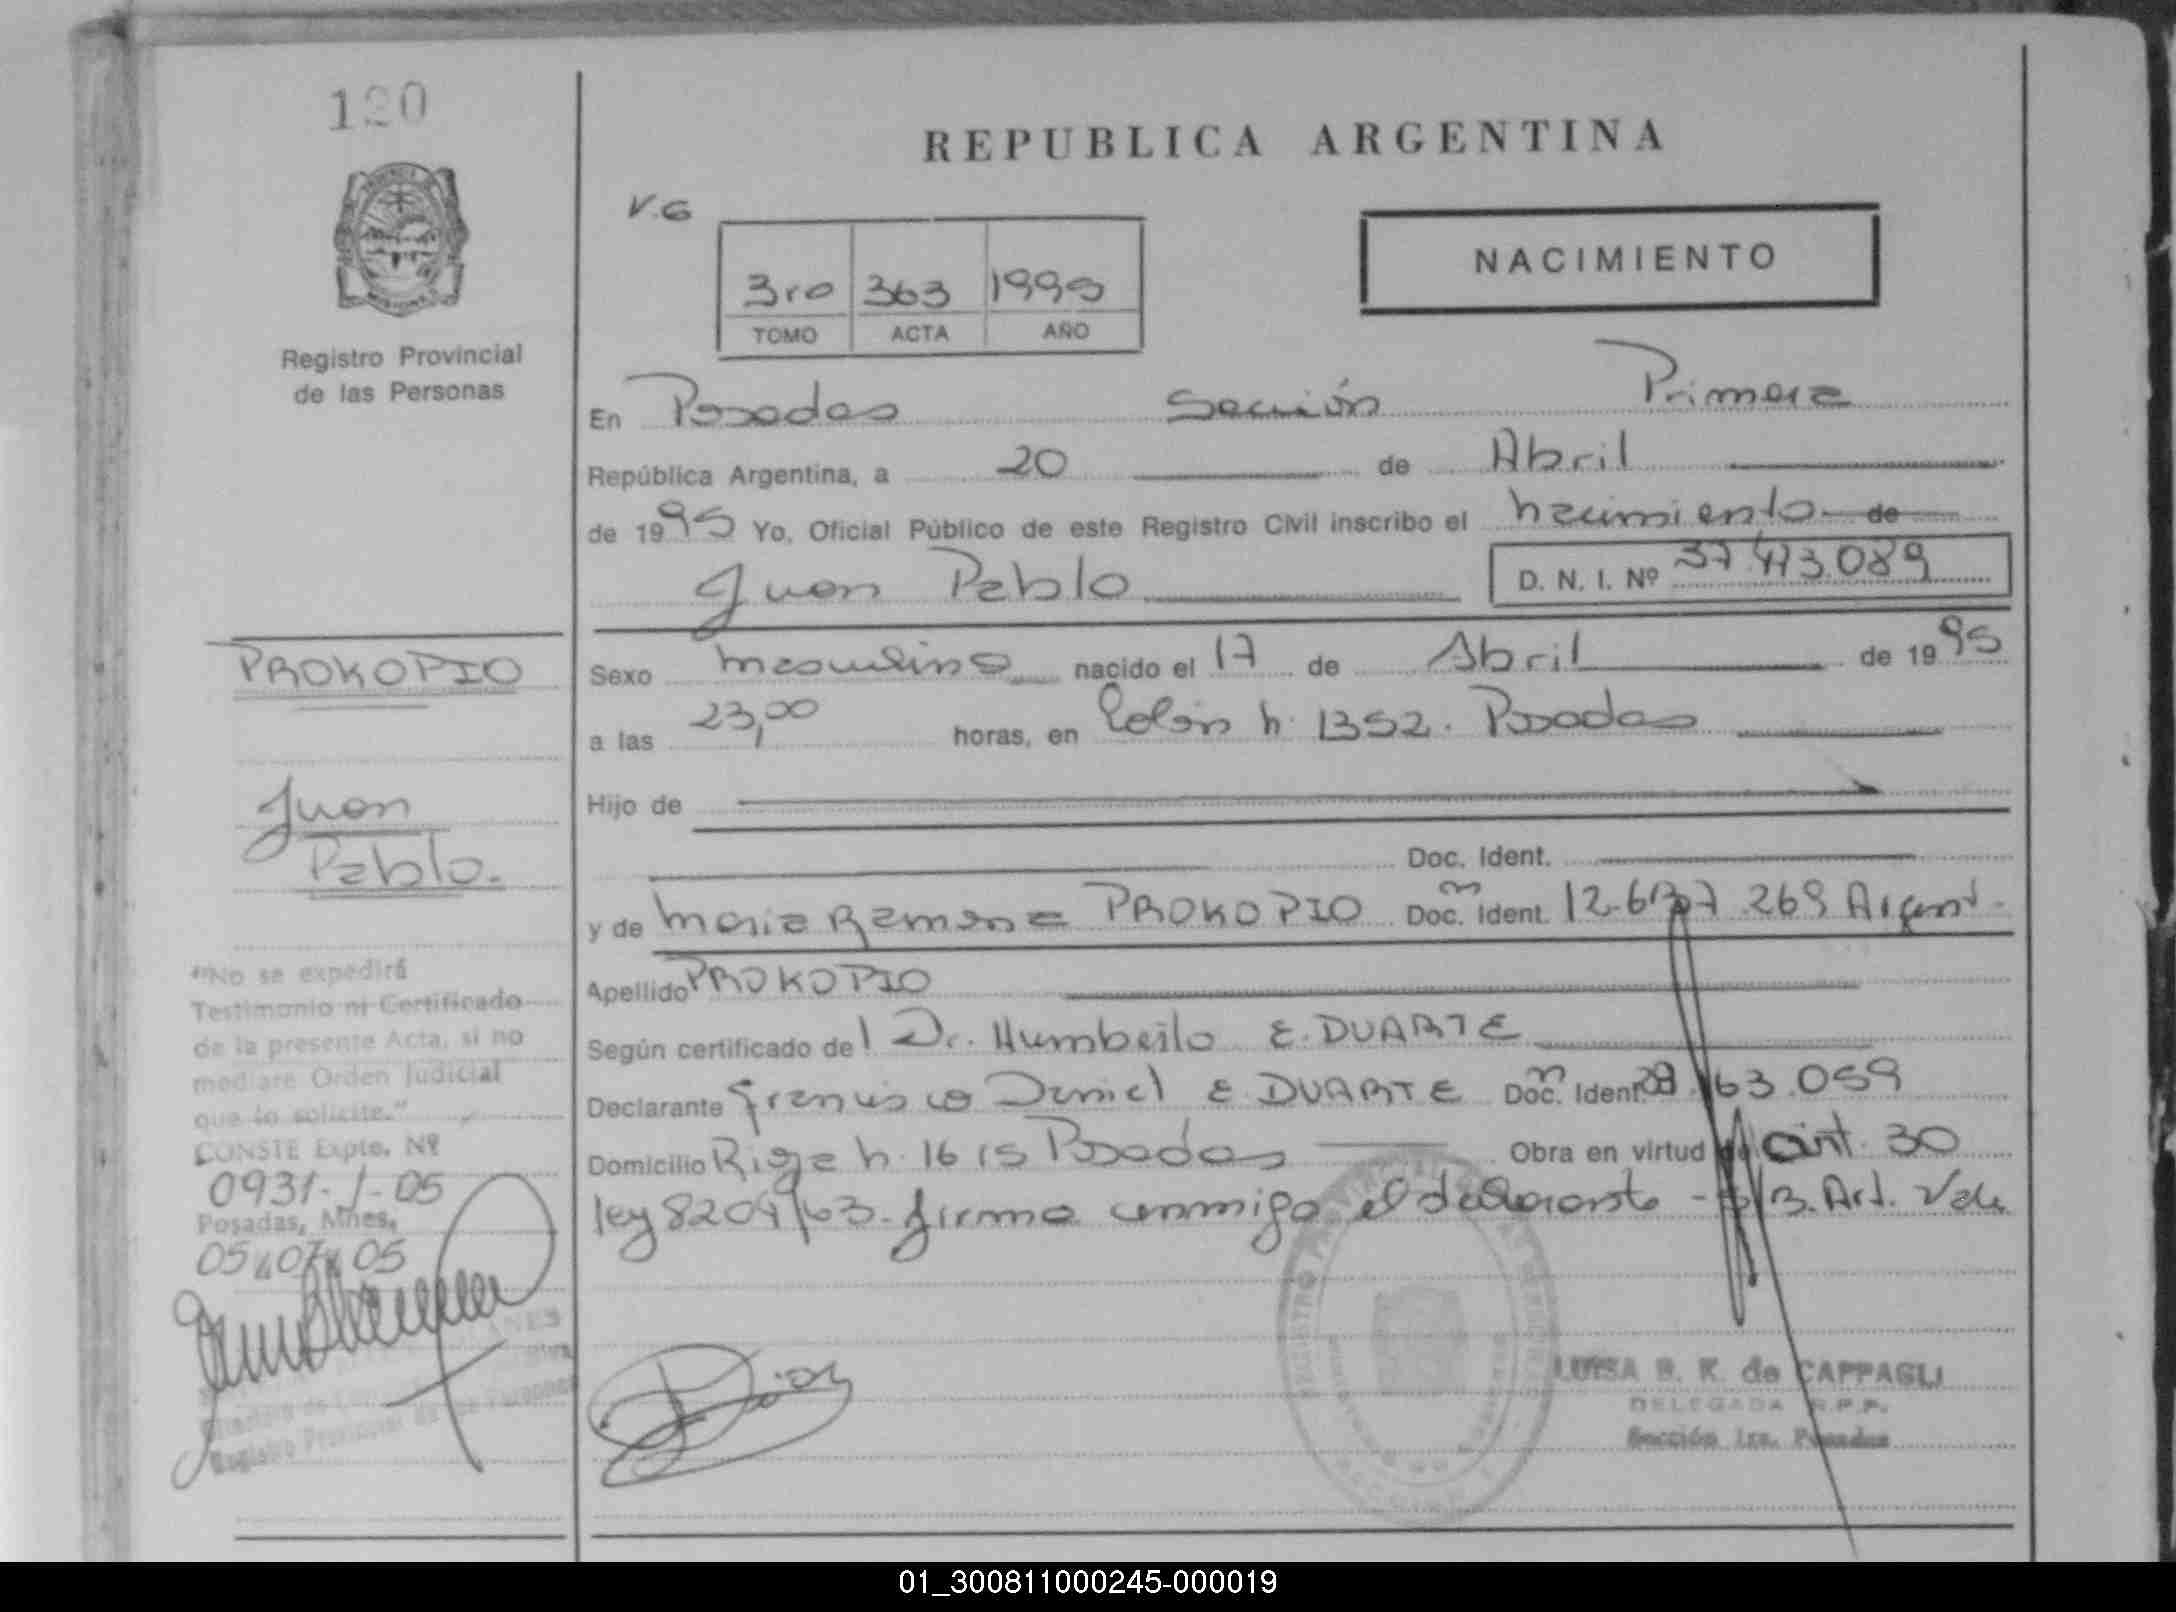 120
REPUBLICA ARGENTINA
V.G
3ro 363 1995
TOMO ACTA AÑO
NACIMIENTO
Registro Provincial
de las Personas
En Posadas Sección Primera
República Argentina, a 20 de Abril
de 1995 Yo, Oficial Público de este Registro Civil inscribo el nacimiento de
Juan Pablo D. N. I. Nº 37.413.089
PROKOPIO
Juan
Pablo.
Sexo masculino nacido el 17 de Abril de 1995
a las 23,00 horas, en Colón n. 1352. Posadas
Hijo de
Doc. Ident.
y de Maria Ramona PROKOPIO Doc. Ident. 269 Argent.
Apellido PROKOPIO
Según certificado del Dr. Humberto E. DUARTE
Declarante Francisco Daniel E. DUARTE Doc. Ident. 163.059
Domicilio Rioja n. 1615 Posadas Obra en virtud de art. 30
ley 8204/63. firma conmigo el declarante - Art. Vale
"No se expedirá
Testimonio ni Certificado
de la presente Acta, si no
mediare Orden Judicial
que lo solicite."
CONSTE Expte. Nº
0931-J-05
Posadas, Mnes,
05 07 05
Registro Provincial de las Personas
LUISA B. K. de CAPPAGLI
DELEGADA R.P.P.
Sección 1ra. Posadas
01_300811000245-000019